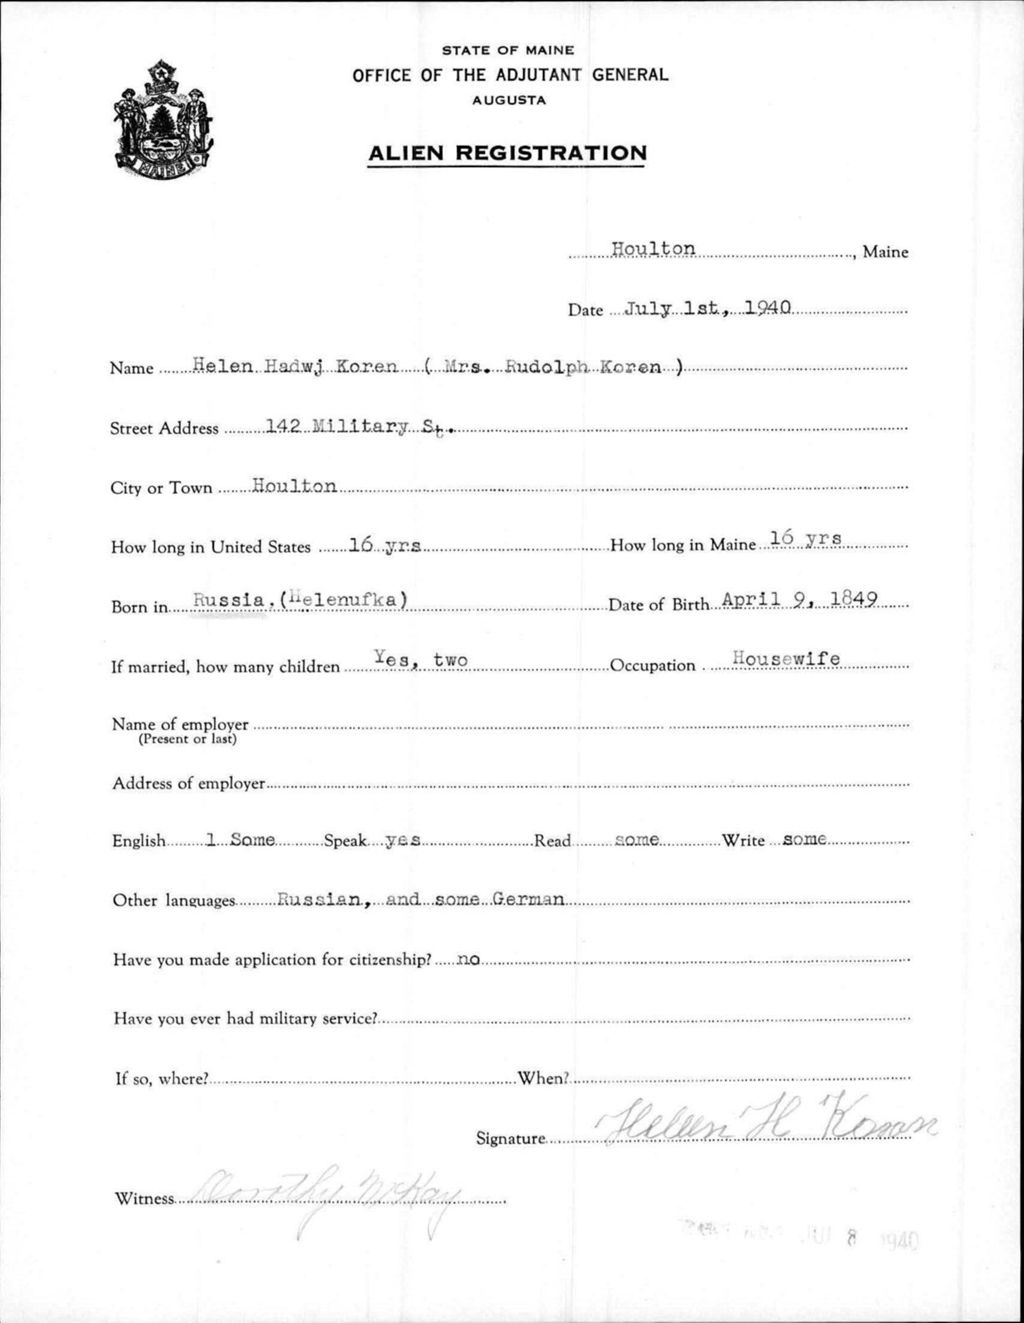 STATE OF MAINE
OFFICE OF THE ADJUTANT GENERAL
AUGUSTA
ALIEN REGISTRATION
MAINE
Houlton, Maine
Date July 1st, 1940
Name Helen Hadwj Koren ( Mrs. Rudolph Koren )
Street Address 142 Military St.
City or Town Houlton
How long in United States 16 yrs How long in Maine 16 yrs
Born in Russia.(Helenufka) Date of Birth April 9, 1849
If married, how many children Yes, two Occupation Housewife
Name of employer
(Present or last)
Address of employer
English 1 Some Speak yes Read some Write some
Other languages Russian, and some German
Have you made application for citizenship? no
Have you ever had military service?
If so, where? When?
Signature Heleen H Koren
Witness Dorothy McKay
JUL 8 1940